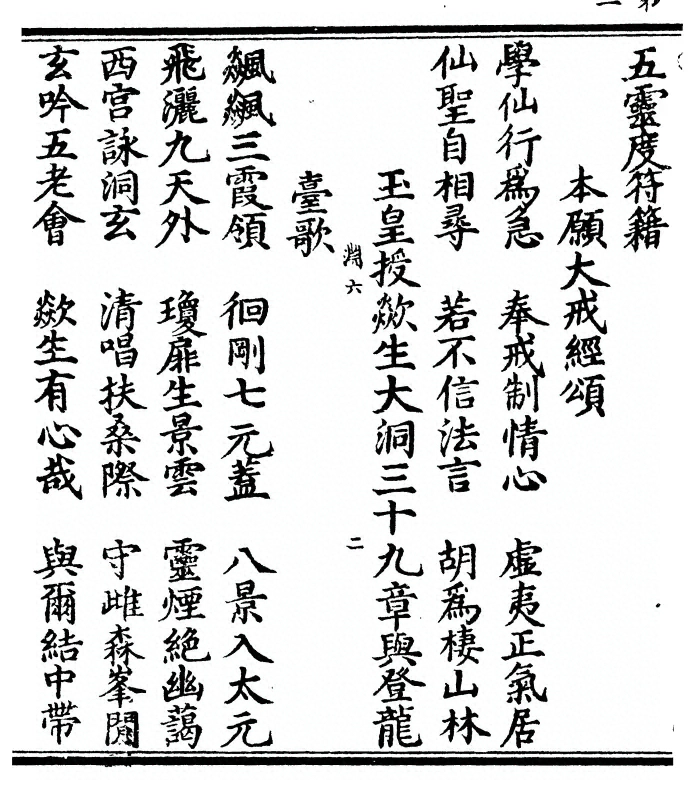 五靈度符籍
本願大戒經頌
學仙行爲急　奉戒制情心　虛夷正氣居
仙聖自相尋　若不信法言　胡爲棲山林
玉皇授歘生大洞三十九章與登龍
淵六　二
臺歌
飈飈三霞領　徊剛七元蓋　八景入太元
飛灑九天外　瓊扉生景雲　靈煙絕幽藹
西宮詠洞玄　清唱扶桑際　守雌森峯閒
玄吟五老會　歘生有心哉　與爾結中帶